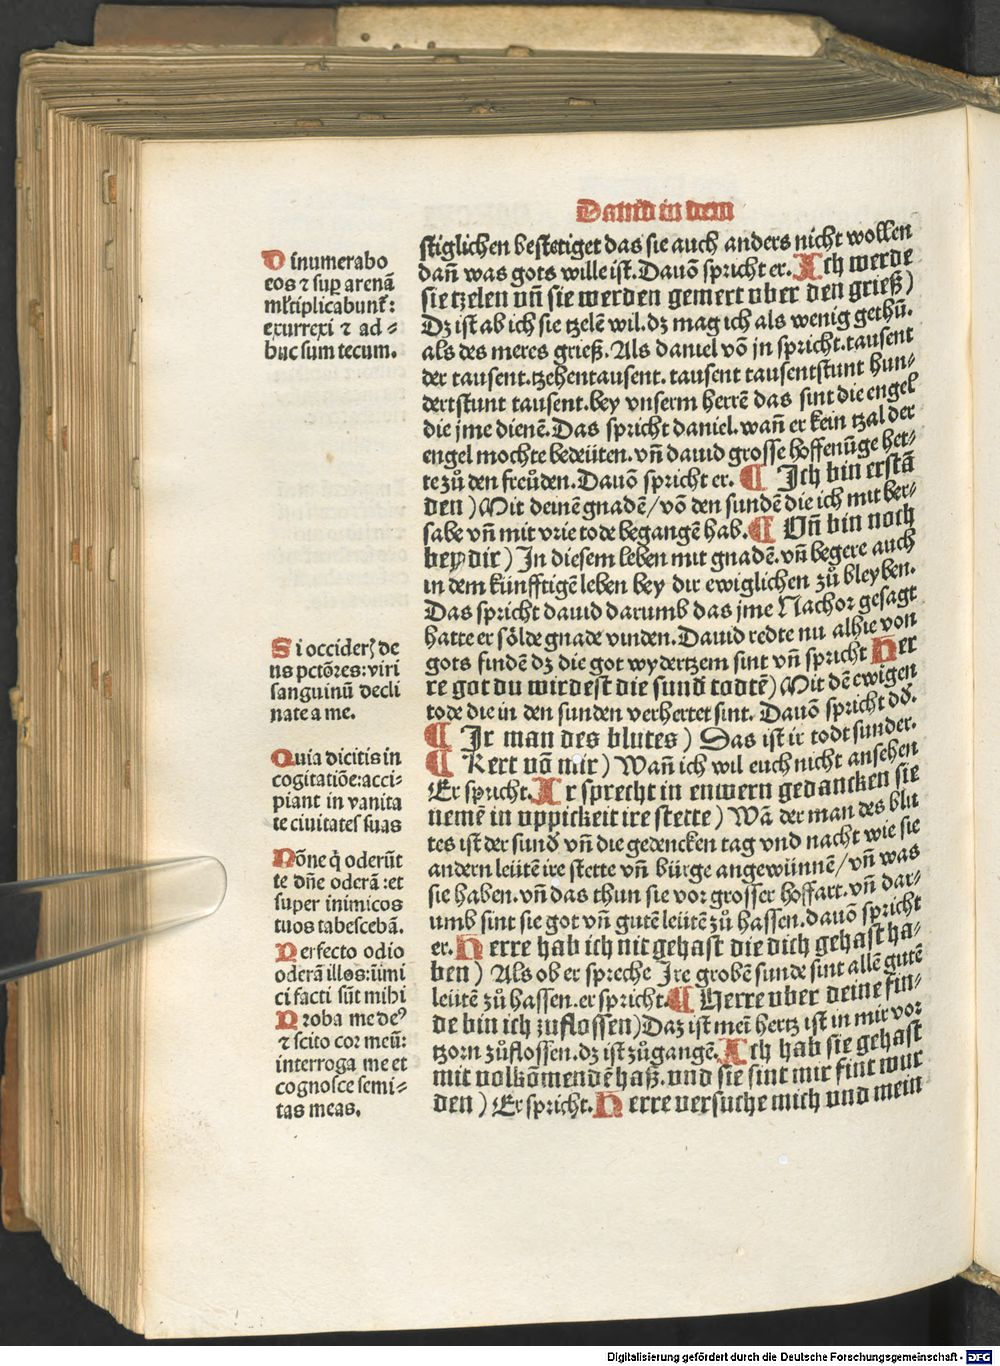 Dauid in dem
Dinumerabo
eos ⁊ suꝑ arenã
mĺtiplicabunt᷒:
exurrexi ⁊ ad⸗
huc sum tecum.
Si occider᷒ de
us pctõres: viri
sanguinũ decli
nate a me.
Quia dicitis in
cogitatiõe: acci⸗
piant in vanita
te ciuitates suas
Nõne q̇ oderũt
te dñe oderã : et
super inimicos
tuos tabescebã.
Perfecto odio
oderã illos: inimi
ci facti sũt mihi
Proba me deꝰ
⁊ scito cor meũ:
interroga me et
cognosce semi⸗
tas meas.
stiglichen bestetiget das sie auch anders nicht wollen
dañ was gots wille ist. Dauõ spricht er. Ich werde
sie tzelen vñ sie werden gemert vber den grieß)
Dz ist ab ich sie tzelẽ wil. dz mag ich als wenig gethũ.
als des meres grieß. Als daniel võ jn spricht. tausent
der tausent. tzehentausent. tausent tausentstunt hun⸗
dertstunt tausent. bey vnserm herrẽ das sint die engel
die jme dienẽ. Das spricht daniel. wañ er kein tzal der
engel mochte bedeüten. vñ dauid grosse hoffenũge het⸗
te zů den freůden. Dauõ spricht er. ¶ Ich bin erstã
den) Mit deinẽ gnadẽ/ võ den sundẽ die ich mit ber⸗
sabe vñ mit vrie tode begangẽ hab. ¶ Vñ bin noch
bey dir) In diesem leben mit gnadẽ. vñ begere auch
in dem künfftigẽ leben bey dir ewiglichen zů bleyben.
Das spricht dauid darumb das jme Nachor gesagt
hatte er sölde gnade vinden. Dauid redte nu alhie von
gots findẽ dz die got wydertzem sint vñ spricht Her
re got du wirdest die sund̃ todtẽ) Mit dẽ ewigen
tode die in den sunden verhertet sint. Dauõ spricht dõ.
¶ Ir man des blutes) Das ist ir todt sunder.
¶ Kert vã mir) Wañ ich wil euch nicht ansehen
Er spricht. Ir sprecht in enwern gedancken sie
nemẽ in vppickeit ire stette) Wã der man des blu
tes ist der sund̃ vñ die gedencken tag vnd nacht wie sie
andern leütẽ ire stette vñ bürge angewünnẽ/ vñ was
sie haben. vñ das thun sie vor grosser hoffart. vñ dar⸗
umb sint sie got vñ gutẽ leütẽ zů hassen. dauõ spricht
er. Herre hab ich nit gehast die dich gehast ha⸗
ben) Als ob er spreche Ire grobẽ sunde sint allẽ gutẽ
leütẽ zů hassen. er spricht. ¶ Herre vber deine fin⸗
de bin ich zuflossen) Daz ist meĩ hertz ist in mir vor
tzorn zůflossen. dz ist zůgangẽ. Ich hab sie gehast
mit volkõmendẽ haß. vnd sie sint mir fint wur
den) Er spricht. Herre versuche mich vnd mein
Digitalisierung gefördert durch die Deutsche Forschungsgemeinschaft - DFG